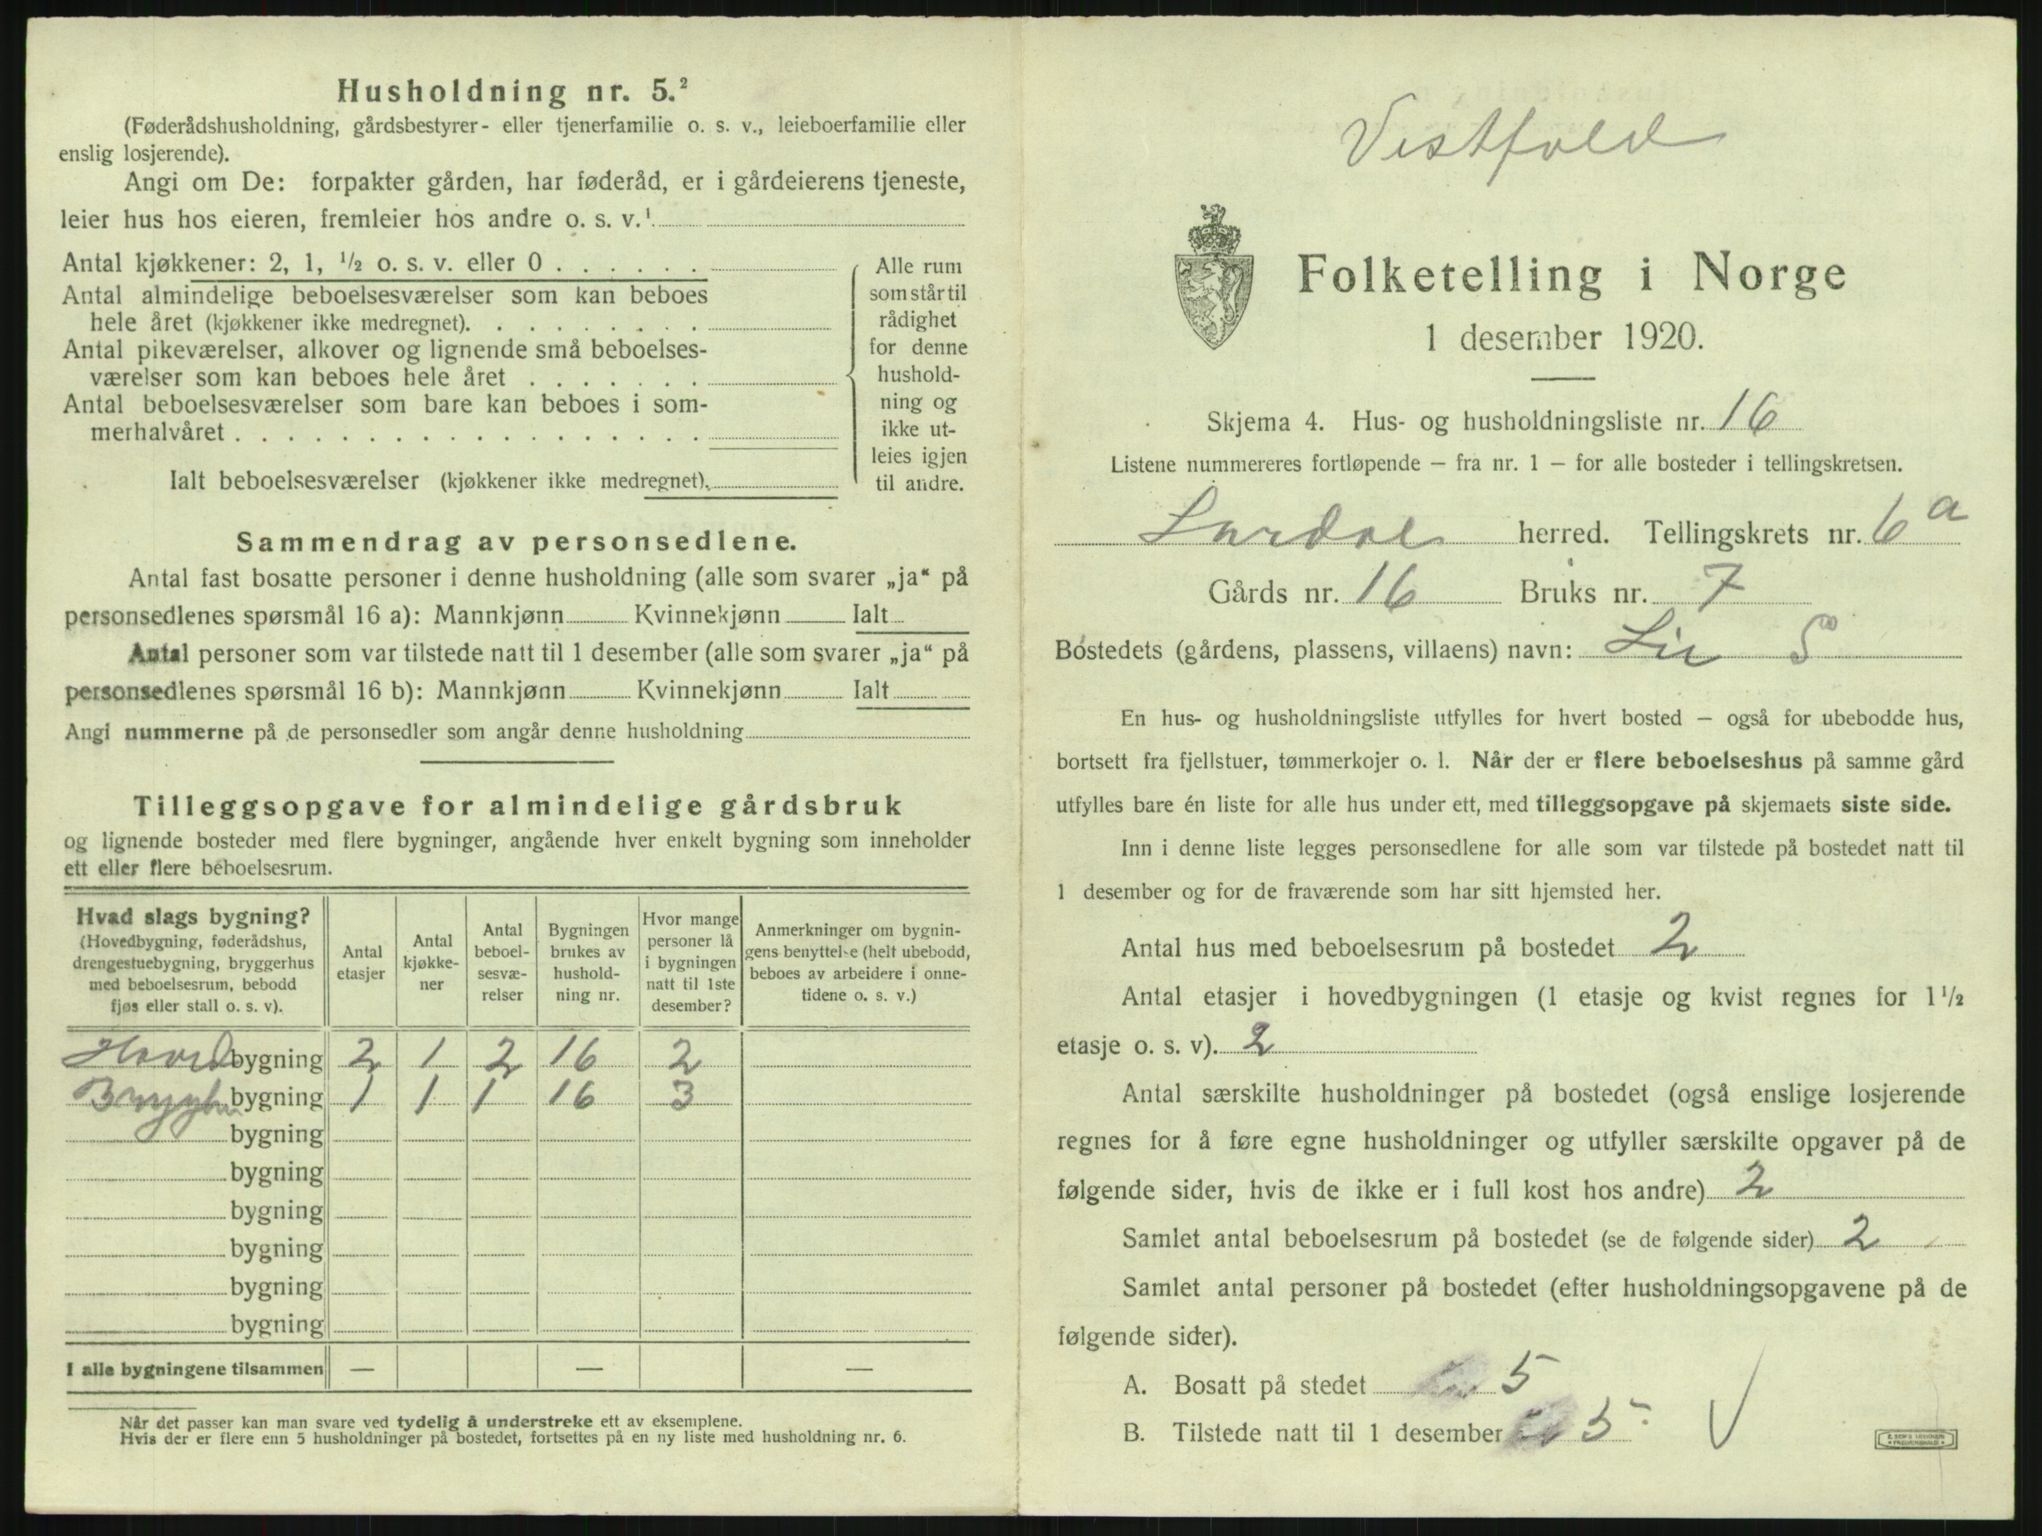 Husholdning nr. 5.²
(Føderådshusholdning, gårdsbestyrer- eller tjenerfamilie o. s. v., leieboerfamilie eller
enslig losjerende).
Angi om De: forpakter gården, har føderåd, er i gårdeierens tjeneste,
leier hus hos eieren, fremleier hos andre o. s. v.¹
Antal kjøkkener: 2, 1, ½ o. s. v. eller 0 . . . . . .
Antal almindelige beboelsesværelser som kan beboes
hele året (kjøkkener ikke medregnet). . . . . . . . .
Antal pikeværelser, alkover og lignende små beboelses-
værelser som kan beboes hele året . . . . . . .
Antal beboelsesværelser som bare kan beboes i som-
merhalvåret . . . . . . . . . . . . . . . . . .
Ialt beboelsesværelser (kjøkkener ikke medregnet).
Alle rum
som står til
rådighet
for denne
hushold-
ning og
ikke ut-
leies igjen
til andre.
Sammendrag av personsedlene.
Antal fast bosatte personer i denne husholdning (alle som svarer „ja“ på
personsedlenes spørsmål 16 a): Mannkjønn Kvinnekjønn Ialt
Antal personer som var tilstede natt til 1 desember (alle som svarer „ja“ på
personsedlenes spørsmål 16 b): Mannkjønn Kvinnekjønn Ialt
Angi nummerne på de personsedler som angår denne husholdning
Tilleggsopgave for almindelige gårdsbruk
og lignende bosteder med flere bygninger, angående hver enkelt bygning som inneholder
ett eller flere beboelsesrum.
Hvad slags bygning?
(Hovedbygning, føderådshus,
drengestuebygning, bryggerhus
med beboelsesrum, bebodd
fjøs eller stall o. s. v).
Antal
etasjer
Antal
kjøkke-
ner
Antal
beboel-
sesvæ-
relser
Bygningen
brukes av
hushold-
ning nr.
Hvor mange
personer lå
i bygningen
natt til 1ste
desember?
Anmerkninger om bygnin-
gens benyttelse (helt ubebodd,
beboes av arbeidere i onne-
tidene o. s. v.)
Hovedbygning 2 1 2 16 2
bygning 1 1 1 16 3
bygning
bygning
bygning
bygning
bygning
bygning
I alle bygningene tilsammen — — —
Når det passer kan man svare ved tydelig å understreke ett av eksemplene.
Hvis der er flere enn 5 husholdninger på bostedet, fortsettes på en ny liste med husholdning nr. 6.
Vestfold
Folketelling i Norge
1 desember 1920.
Skjema 4. Hus- og husholdningsliste nr. 16
Listene nummereres fortløpende – fra nr. 1 – for alle bosteder i tellingskretsen.
Lardal herred. Tellingskrets nr. 6a
Gårds nr. 16 Bruks nr. 7
Bostedets (gårdens, plassens, villaens) navn: Lie S
En hus- og husholdningsliste utfylles for hvert bosted – også for ubebodde hus,
bortsett fra fjellstuer, tømmerkojer o. l. Når der er flere beboelseshus på samme gård
utfylles bare én liste for alle hus under ett, med tilleggsopgave på skjemaets siste side.
Inn i denne liste legges personsedlene for alle som var tilstede på bostedet natt til
1 desember og for de fraværende som har sitt hjemsted her.
Antal hus med beboelsesrum på bostedet 2
Antal etasjer i hovedbygningen (1 etasje og kvist regnes for 1½
etasje o. s. v). 2
Antal særskilte husholdninger på bostedet (også enslige losjerende
regnes for å føre egne husholdninger og utfyller særskilte opgaver på de
følgende sider, hvis de ikke er i full kost hos andre) 2
Samlet antal beboelsesrum på bostedet (se de følgende sider) 2
Samlet antal personer på bostedet (efter husholdningsopgavene på de
følgende sider).
A. Bosatt på stedet 5
B. Tilstede natt til 1 desember 5